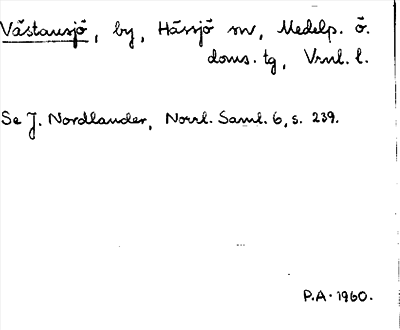 Västansjö, by, Hässjö sn, Medelp. ö.
doms. tg, Vrnl. l.
Se J. Nordlander, Norrl. Saml. 6, s. 239.
P.A. 1960.